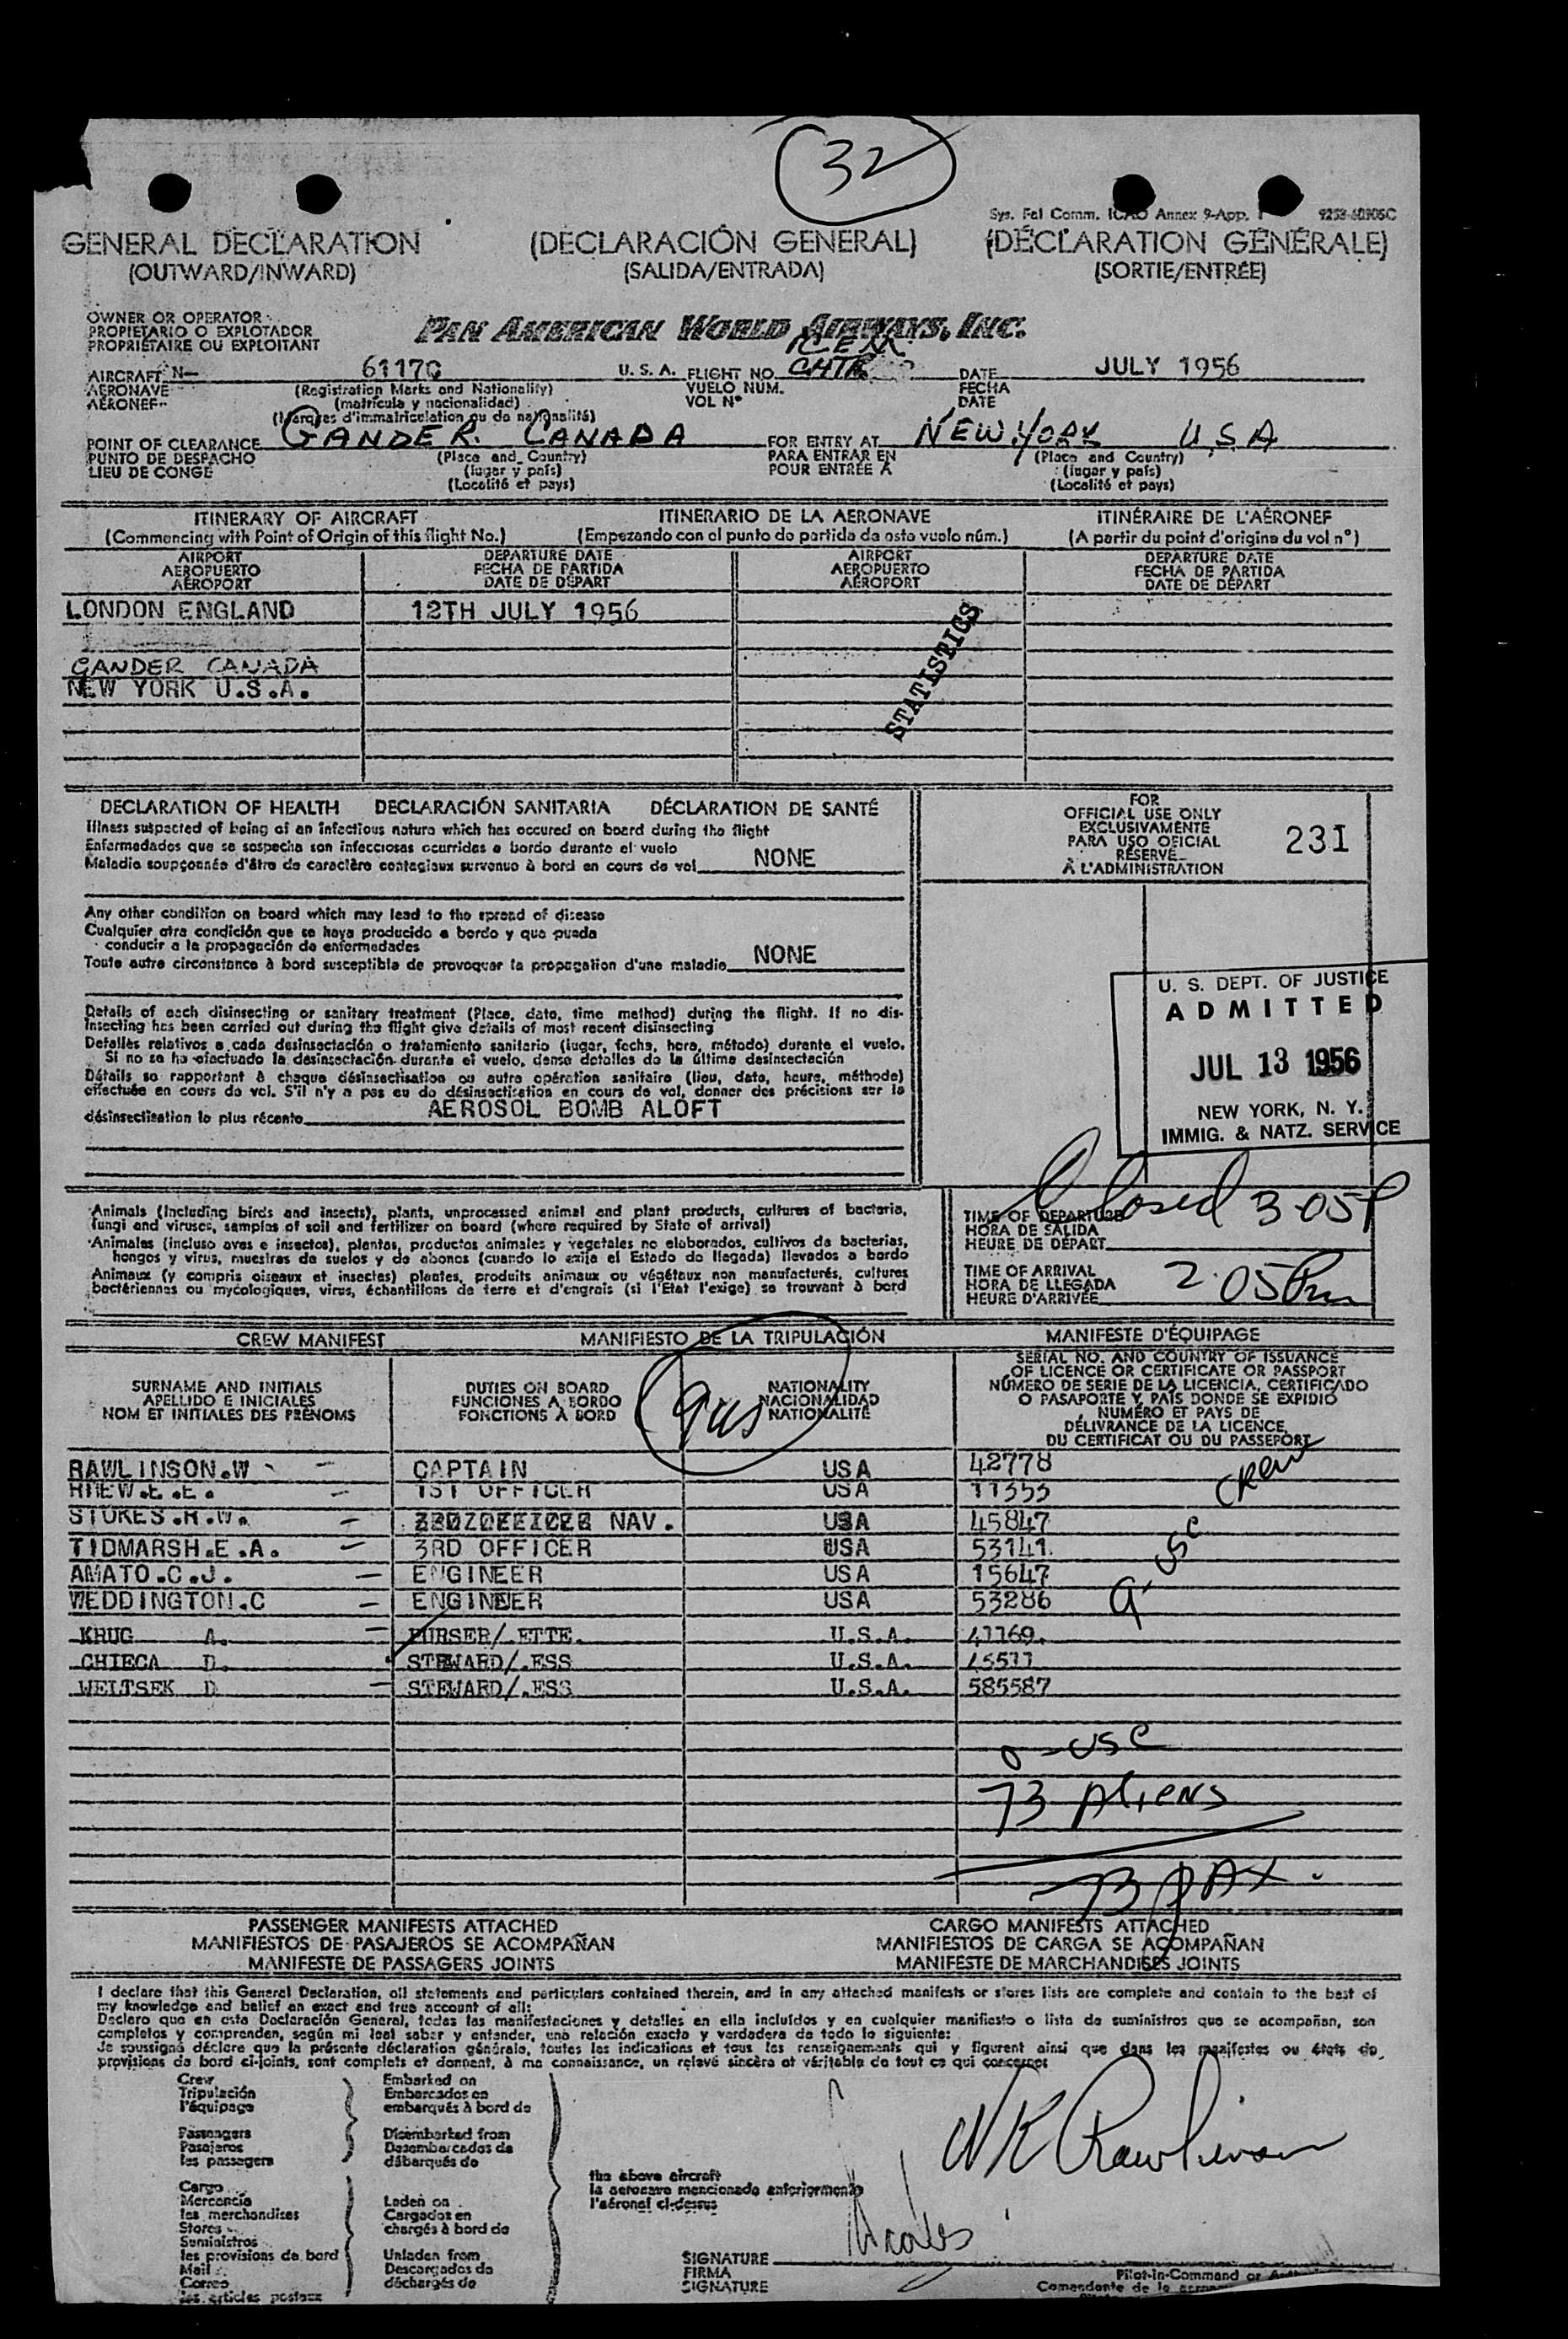 32
Sys. Fal Comm. ICAO Annex 9-App. 1
GENERAL DECLARATION (DECLARACIÓN GENERAL) (DÉCLARATION GÉNÉRALE)
(OUTWARD/INWARD) (SALIDA/ENTRADA) (SORTIE/ENTRÉE)
OWNER OR OPERATOR
PROPIETARIO O EXPLOTADOR
PROPRIÉTAIRE OU EXPLOITANT
PAN AMERICAN WORLD AIRWAYS, INC.
ICEM
AIRCRAFT N- 6117C U. S. A. FLIGHT NO. CHTR DATE JULY 1956
AERONAVE (Registration Marks and Nationality) VUELO NUM. FECHA
AÉRONEF (matrícula y nacionalidad) VOL Nº DATE
(Marques d'immatriculation ou de nationalité)
POINT OF CLEARANCE GANDER. CANADA FOR ENTRY AT NEW YORK U.S.A
PUNTO DE DESPACHO (Place and Country) PARA ENTRAR EN (Place and Country)
LIEU DE CONGÉ (lugar y país) POUR ENTRÉE À (lugar y país)
(Localité et pays) (Localité et pays)
ITINERARY OF AIRCRAFT ITINERARIO DE LA AERONAVE ITINÉRAIRE DE L'AÉRONEF
(Commencing with Point of Origin of this flight No.) (Empezando con el punto de partida de este vuelo núm.) (A partir du point d'origine du vol nº)
AIRPORT DEPARTURE DATE AIRPORT DEPARTURE DATE
AEROPUERTO FECHA DE PARTIDA AEROPUERTO FECHA DE PARTIDA
AÉROPORT DATE DE DÉPART AÉROPORT DATE DE DÉPART
LONDON ENGLAND 12TH JULY 1956
STATISTICS
GANDER CANADA
NEW YORK U.S.A.
DECLARATION OF HEALTH DECLARACIÓN SANITARIA DÉCLARATION DE SANTÉ
Illness suspected of being of an infectious nature which has occured on board during the flight
Enfermedades que se sospecha son infecciosas ocurridas a bordo durante el vuelo
Maladie soupçonnée d'être de caractère contagieux survenue à bord en cours de vol NONE
FOR
OFFICIAL USE ONLY
EXCLUSIVAMENTE
PARA USO OFICIAL
RÉSERVÉ
À L'ADMINISTRATION
231
Any other condition on board which may lead to the spread of disease
Cualquier otra condición que se haya producido a bordo y que pueda
conducir a la propagación de enfermedades
Toute autre circonstance à bord susceptible de provoquer la propagation d'une maladie NONE
Details of each disinsecting or sanitary treatment (Place, date, time method) during the flight. If no dis-
insecting has been carried out during the flight give details of most recent disinsecting
Detalles relativos a cada desinsectación o tratamiento sanitario (lugar, fecha, hora, método) durante el vuelo.
Si no se ha efectuado la desinsectación durante el vuelo, dense detalles de la última desinsectación
Détails se rapportant à chaque désinsectisation ou autre opération sanitaire (lieu, date, heure, méthode)
effectuée en cours de vol. S'il n'y a pas eu de désinsectisation en cours de vol, donner des précisions sur la
désinsectisation la plus récente AEROSOL BOMB ALOFT
U. S. DEPT. OF JUSTICE
ADMITTED
JUL 13 1956
NEW YORK, N. Y.
IMMIG. & NATZ. SERVICE
Animals (including birds and insects), plants, unprocessed animal and plant products, cultures of bacteria,
fungi and viruses, samples of soil and fertilizer on board (where required by State of arrival)
Animales (incluso aves e insectos), plantas, productos animales y vegetales no elaborados, cultivos de bacterias,
hongos y virus, muestras de suelos y de abonos (cuando lo exija el Estado de llegada) llevados a bordo
Animaux (y compris oiseaux et insectes) plantes, produits animaux ou végétaux non manufacturés, cultures
bactériennes ou mycologiques, virus, échantillons de terre et d'engrais (si l'Etat l'exige) se trouvant à bord
Closed 3.05P
TIME OF DEPARTURE
HORA DE SALIDA
HEURE DE DÉPART
TIME OF ARRIVAL
HORA DE LLEGADA
HEURE D'ARRIVÉE
2.05Pm
CREW MANIFEST MANIFIESTO DE LA TRIPULACIÓN MANIFESTE D'ÉQUIPAGE
SURNAME AND INITIALS
APELLIDO E INICIALES
NOM ET INITIALES DES PRÉNOMS
DUTIES ON BOARD
FUNCIONES A BORDO
FONCTIONS À BORD
NATIONALITY
NACIONALIDAD
NATIONALITÉ
SERIAL NO. AND COUNTRY OF ISSUANCE
OF LICENCE OR CERTIFICATE OR PASSPORT
NÚMERO DE SERIE DE LA LICENCIA, CERTIFICADO
O PASAPORTE Y PAÍS DONDE SE EXPIDIÓ
NUMÉRO ET PAYS DE
DÉLIVRANCE DE LA LICENCE,
DU CERTIFICAT OU DU PASSEPORT
RAWLINSON.W - CAPTAIN USA 42778
RHEW.E.E. - 1ST OFFICER USA 11353
STOKES.H.W. - NAV. USA 45847
TIDMARSH.E.A. - 3RD OFFICER USA 53141
AMATO.C.J. - ENGINEER USA 15647
WEDDINGTON.C - ENGINEER USA 53286
CREW
9 USC
KRUG A. - PURSER/.ETTE. U.S.A. 41169.
CHIECA D. STEWARD/.ESS U.S.A. 45511
WEITSEK D - STEWARD/.ESS U.S.A. 585587
0-USC
73 ALIENS
73 PAX.
PASSENGER MANIFESTS ATTACHED CARGO MANIFESTS ATTACHED
MANIFIESTOS DE PASAJEROS SE ACOMPAÑAN MANIFIESTOS DE CARGA SE ACOMPAÑAN
MANIFESTE DE PASSAGERS JOINTS MANIFESTE DE MARCHANDISES JOINTS
I declare that this General Declaration, all statements and particulars contained therein, and in any attached manifests or stores lists are complete and contain to the best of
my knowledge and belief an exact and true account of all:
Declaro que en esta Declaración General, todas las manifestaciones y detalles en ella incluídos y en cualquier manifiesto o lista de suministros que se acompañan, son
completos y comprenden, según mi leal saber y entender, una relación exacta y verdadera de todo lo siguiente:
Je soussigné déclare que la présente déclaration générale, toutes les indications et tous les renseignements qui y figurent ainsi que dans les manifestes ou états de
provisions de bord ci-joints, sont complets et donnent, à ma connaissance, un relevé sincère et véritable de tout ce qui concerne:
Crew
Tripulación
l'équipage
Embarked on
Embarcados en
embarqués à bord de
Passengers
Pasajeros
les passagers
Disembarked from
Desembarcados de
débarqués de
Cargo
Mercancía
les merchandises
Stores
Suministros
les provisions de bord
Mail
Correo
les articles postaux
Laden on
Cargados en
chargés à bord de
Unladen from
Descargados de
déchargés de
the above aircraft
la aeronave mencionada anteriormente
l'aéronef ci-dessus
W R Rawlinson
SIGNATURE
FIRMA
SIGNATURE
Pilot-in-Command or
Comandante de la